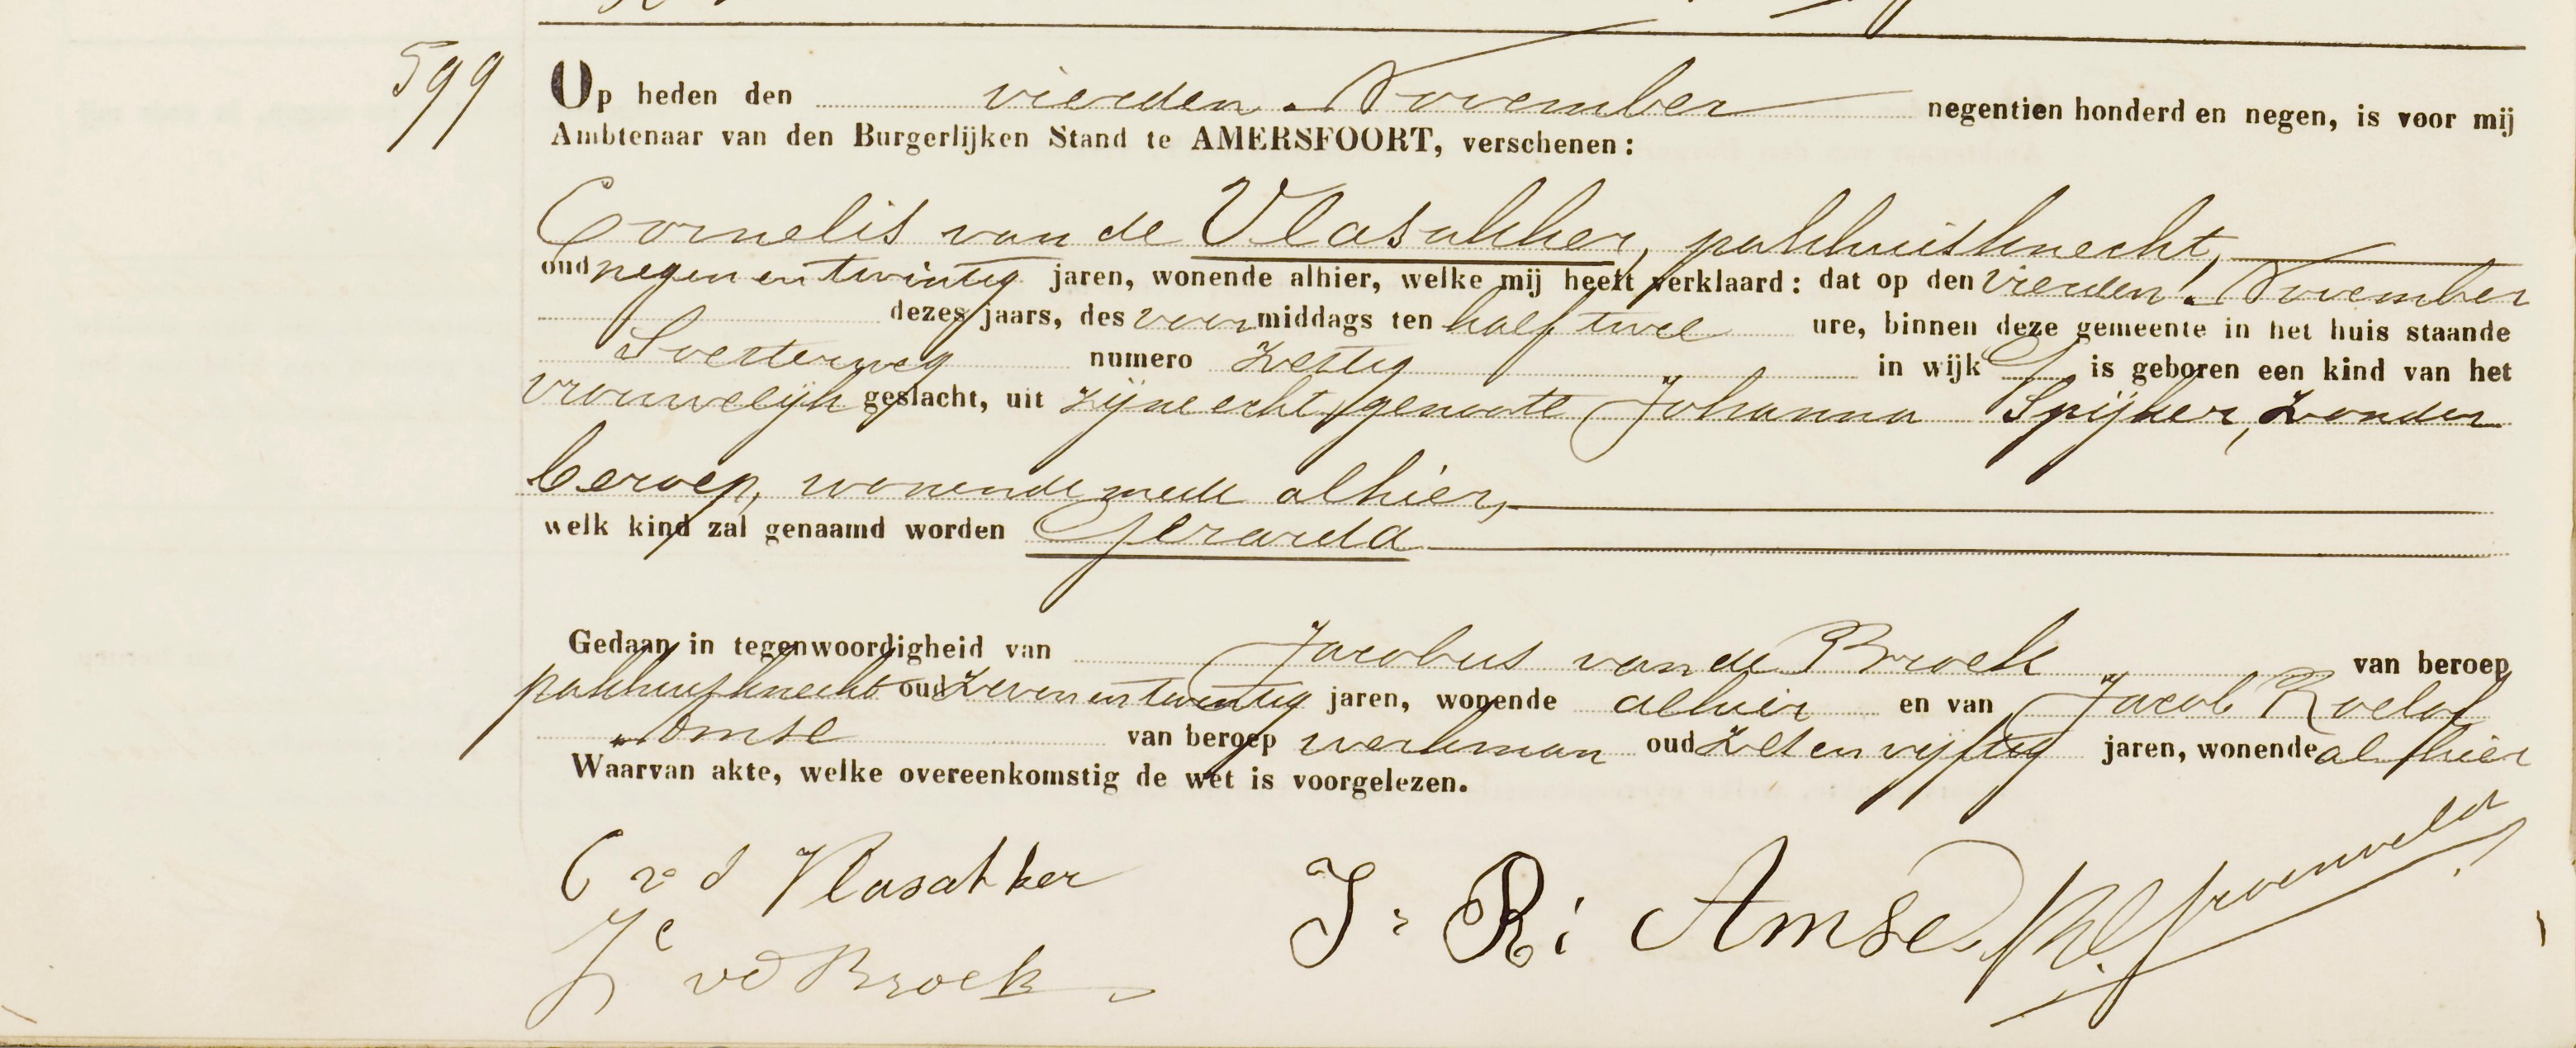 599
Op heden den vierden November negentien honderd en negen, is voor mij
Ambtenaar van den Burgerlijken Stand te AMERSFOORT, verschenen:
Cornelis van de Vlasakker, pakhuisknecht,
oud negen en twintig jaren, wonende alhier, welke mij heeft verklaard: dat op den vierden November
dezes jaars, des voormiddags ten half twee ure, binnen deze gemeente in het huis staande
Soesterweg numero zestig in wijk is geboren een kind van het
vrouwelijk geslacht, uit zijne echtgenoote Johanna Spijker, zonder
beroep, wonende mede alhier,
welk kind zal genaamd worden Gerarda
Gedaan in tegenwoordigheid van Jacobus van de Broek van beroep
pakhuisknecht oud zeven en twintig jaren, wonende alhier en van Jacob Roelof
Amse van beroep werkman oud zes en vijftig jaren, wonende alhier
Waarvan akte, welke overeenkomstig de wet is voorgelezen.
C v d Vlasakker
J: R: Amse
Jc vd Broek